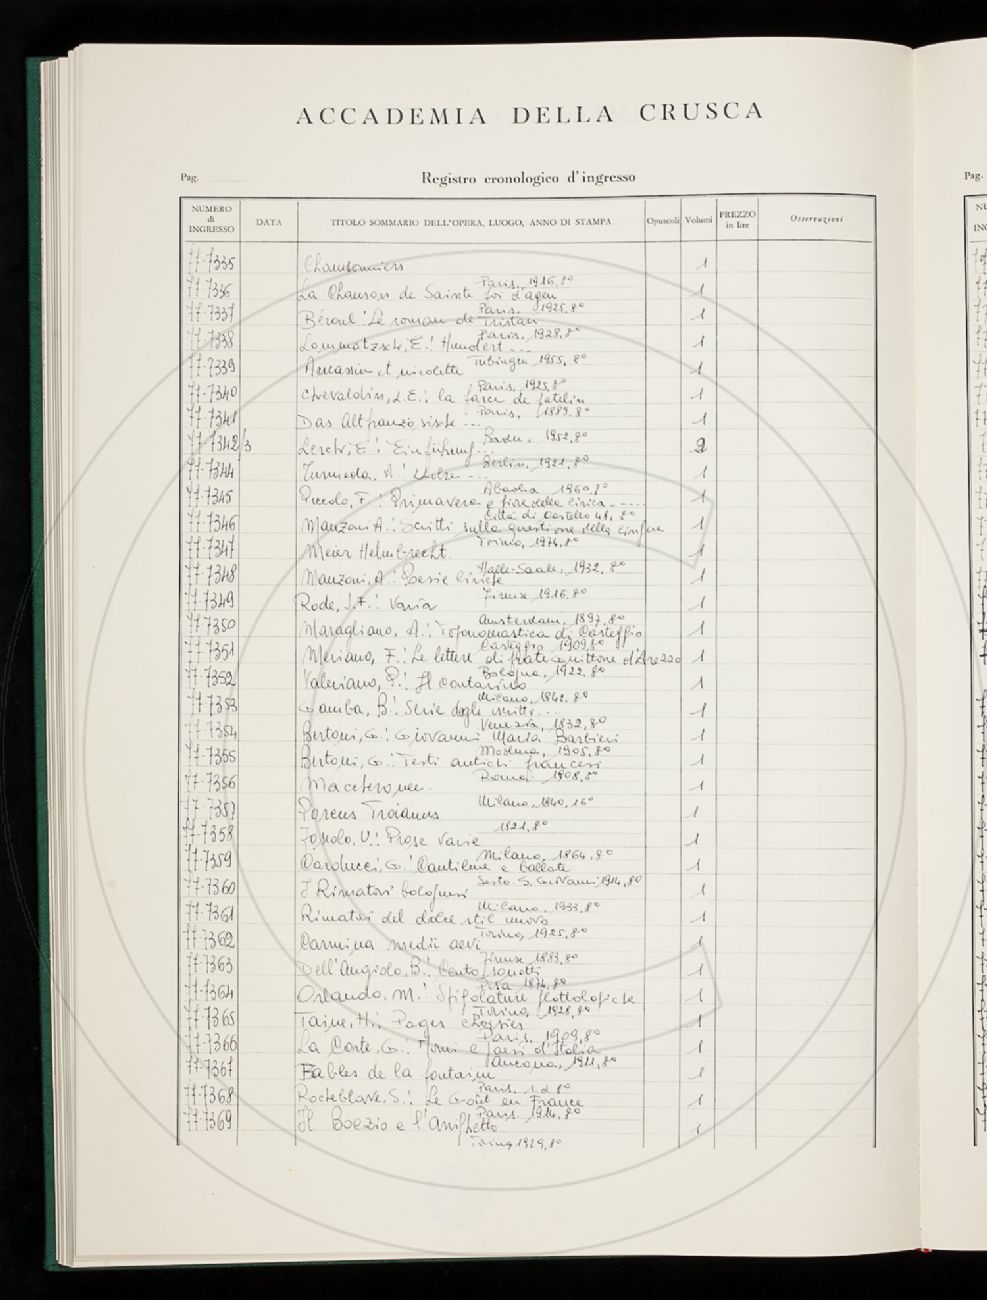 ACCADEMIA DELLA CRUSCA
Pag.
Registro cronologico d'ingresso
Pag.
NUMERO di INGRESSO DATA TITOLO SOMMARIO DELL'OPERA, LUOGO, ANNO DI STAMPA Opuscoli Volumi PREZZO in lire Osservazioni
77-7335 Chansonniers 1
Paris, 1916, 8°
77-7336 La Chanson de Sainte foi d'agen 1
Paris, 1925, 8°
77-7337 Béroul: Le roman de Tristan 1
Paris, 1928, 8°
77-7338 Lommatzsch, E.: Hundert ... 1
Tubingen 1955, 8°
77-7339 Aucassin et nicolette 1
Paris, 1925, 8°
77-7340 Chevaldin, L.E.: la farce de patelin 1
Paris, 1889, 8°
77-7341 Das Altfranzösische ... 1
1952, 8°
77-7342/3 Lerch, E.: Einführung ... 2
Berlin, 1921, 8°
77-7344 Turmeda, A.: ... 1
1960, 8°
77-7345 Piccolo, F.: Primavera e fiore della lirica ..... 1
Città di Castello 48, 8°
77-7346 Manzoni A.: Scritti sulla questione della lingua 1
Torino, 1974, 8°
77-7347 Meier Helmbrecht. 1
Halle-Saale, 1932, 8°
77-7348 Manzoni, A.: Poesie liriche 1
Firenze 1916, 8°
77-7349 Rode, J.F.: Varia 1
Amsterdam, 1897, 8°
77-7350 Maragliano, A.: Toponomastica di Casteggio 1
Casteggio 1909, 8°
77-7351 Meriano, F.: Le lettere di frate guittone d'Arezzo 1
Bologna, 1922, 8°
77-7352 Valeriano, P.: Il contarino 1
Milano, 1842, 8°
77-7353 Gamba, B: Serie degli scritti ... 1
Venezia, 1832, 8°
77-7354 Bertoni, G.: Giovanni Maria Barbieri 1
Modena, 1905, 8°
77-7355 Bertoni, G.: Testi antichi francesi 1
Roma 1908, 8°
77-7356 1
Milano, 1840, 16°
77-7357 Troianus 1
1821, 8°
77-7358 Foscolo, U.: Prose varie 1
Milano, 1864, 8°
77-7359 Carducci, G.: Cantilene e ballate 1
Sesto S. Giovanni 1914, 8°
77-7360 I Rimatori bolognesi 1
Milano, 1933, 8°
77-7361 Rimatori del dolce stil novo 1
Torino, 1925, 8°
77-7362 Carmina medii aevi 1
Firenze 1883, 8°
77-7363 Dell'Angiolo, B.: Cento sonetti 1
Pisa 1874, 8°
77-7364 Orlando, M.: Spigolature glottologiche 1
Torino, 1928, 8°
77-7365 Taine, H.: Pages choisies 1
Paris, 1909, 8°
77-7366 La Corte, G.: Nomi e paesi d'Italia 1
Ancona, 1911, 8°
77-7367 Fables de la fontaine 1
Paris, s.d. 8°
77-7368 Rocheblave, S.: Le Goût en France 1
Paris, 1914, 8°
77-7369 Il Boezio e l'Arrighetto 1
Torino 1929, 8°